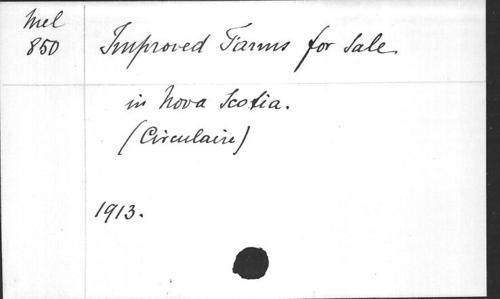 Mel
850
Improved Farms for Sale
in Nova Scotia.
(Circulaire)
1913.